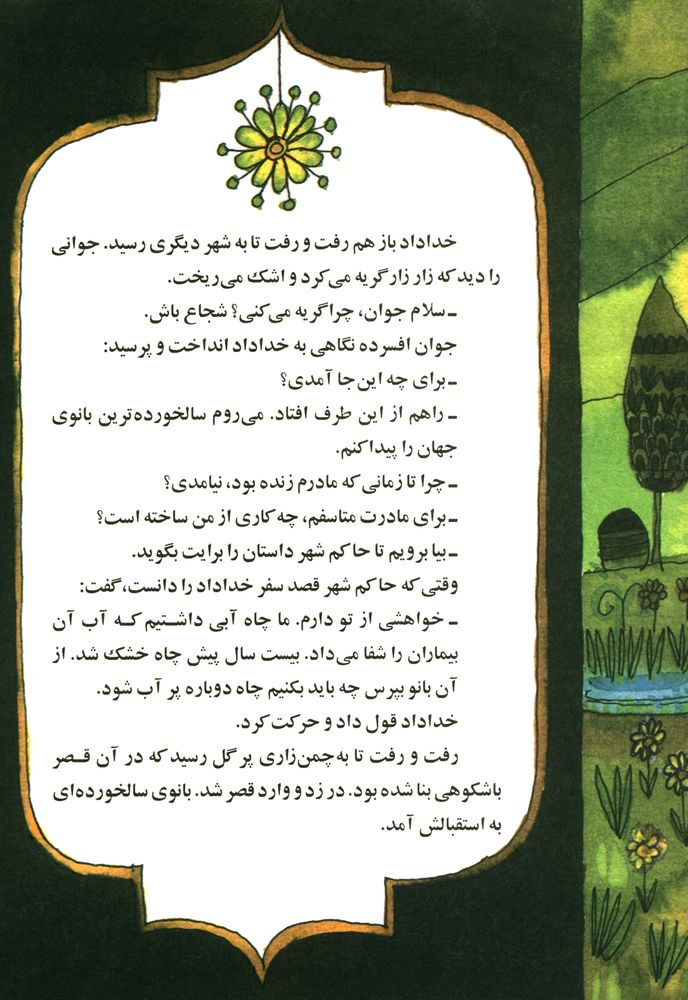 خداداد باز هم رفت و رفت تا به شهر دیگری رسید. جوانی
را دید که زار زار گریه می‌کرد و اشك می‌ریخت.
ـ سلام جوان، چرا گریه می‌کنی؟ شجاع باش.
جوان افسرده نگاهی به خداداد انداخت و پرسید:
ـ برای چه این‌جا آمدی؟
ـ راهم از این طرف افتاد. می‌روم سالخورده‌ترین بانوی
جهان را پیدا کنم.
ـ چرا تا زمانی که مادرم زنده بود، نیامدی؟
ـ برای مادرت متاسفم، چه کاری از من ساخته است؟
ـ بیا برویم تا حاکم شهر داستان را برایت بگوید.
وقتی که حاکم شهر قصد سفر خداداد را دانست، گفت:
ـ خواهشی از تو دارم. ما چاه آبی داشتیم که آب آن
بیماران را شفا می‌داد. بیست سال پیش چاه خشك شد. از
آن بانو بپرس چه باید بکنیم چاه دوباره پر آب شود.
خداداد قول داد و حرکت کرد.
رفت و رفت تا به‌چمن‌زاری پر گل رسید که در آن قصر
باشکوهی بنا شده بود. در زد و وارد قصر شد. بانوی سالخورده‌ای
به استقبالش آمد.